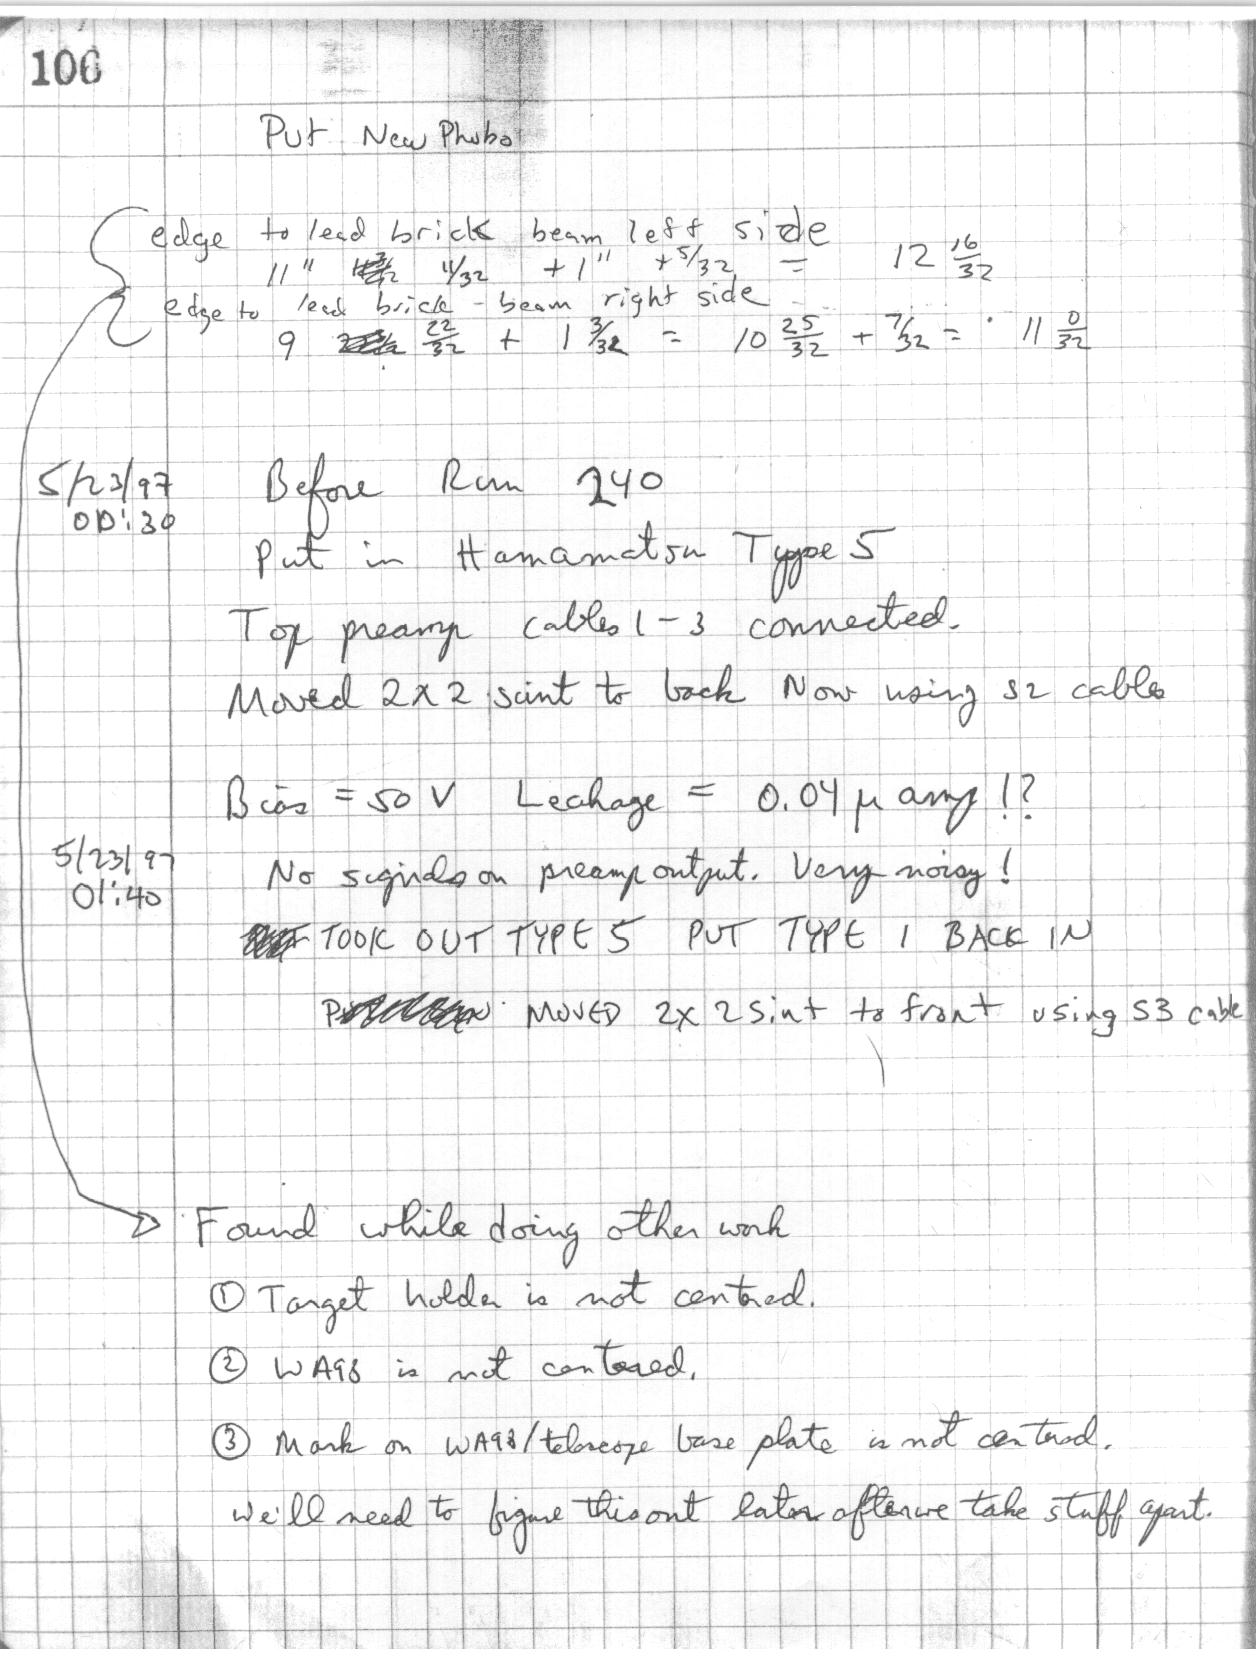 106
Put New Phobo
edge to lead brick beam left side
11" 11/32 + 1" + 5/32 = 12 16/32
edge to lead brick - beam right side
9 22/32 + 1 3/32 = 10 25/32 + 7/32 = 11 0/32
5/23/97 Before Run 240
00:30
Put in Hamamatsu Type 5
Top preamp cables 1-3 connected.
Moved 2x2 scint to back Now using S2 cables
Bias = 50 V Leakage = 0.04 μ amp !?
5/23/97 No signals on preamp output. Very noisy!
01:40
TOOK OUT TYPE 5 PUT TYPE 1 BACK IN
MOVED 2x2 Sint to front using S3 cable
Found while doing other work
① Target holder is not centered.
② WA98 is not centered.
③ Mark on WA98/telescope base plate is not centered.
We'll need to figure this out later after we take stuff apart.